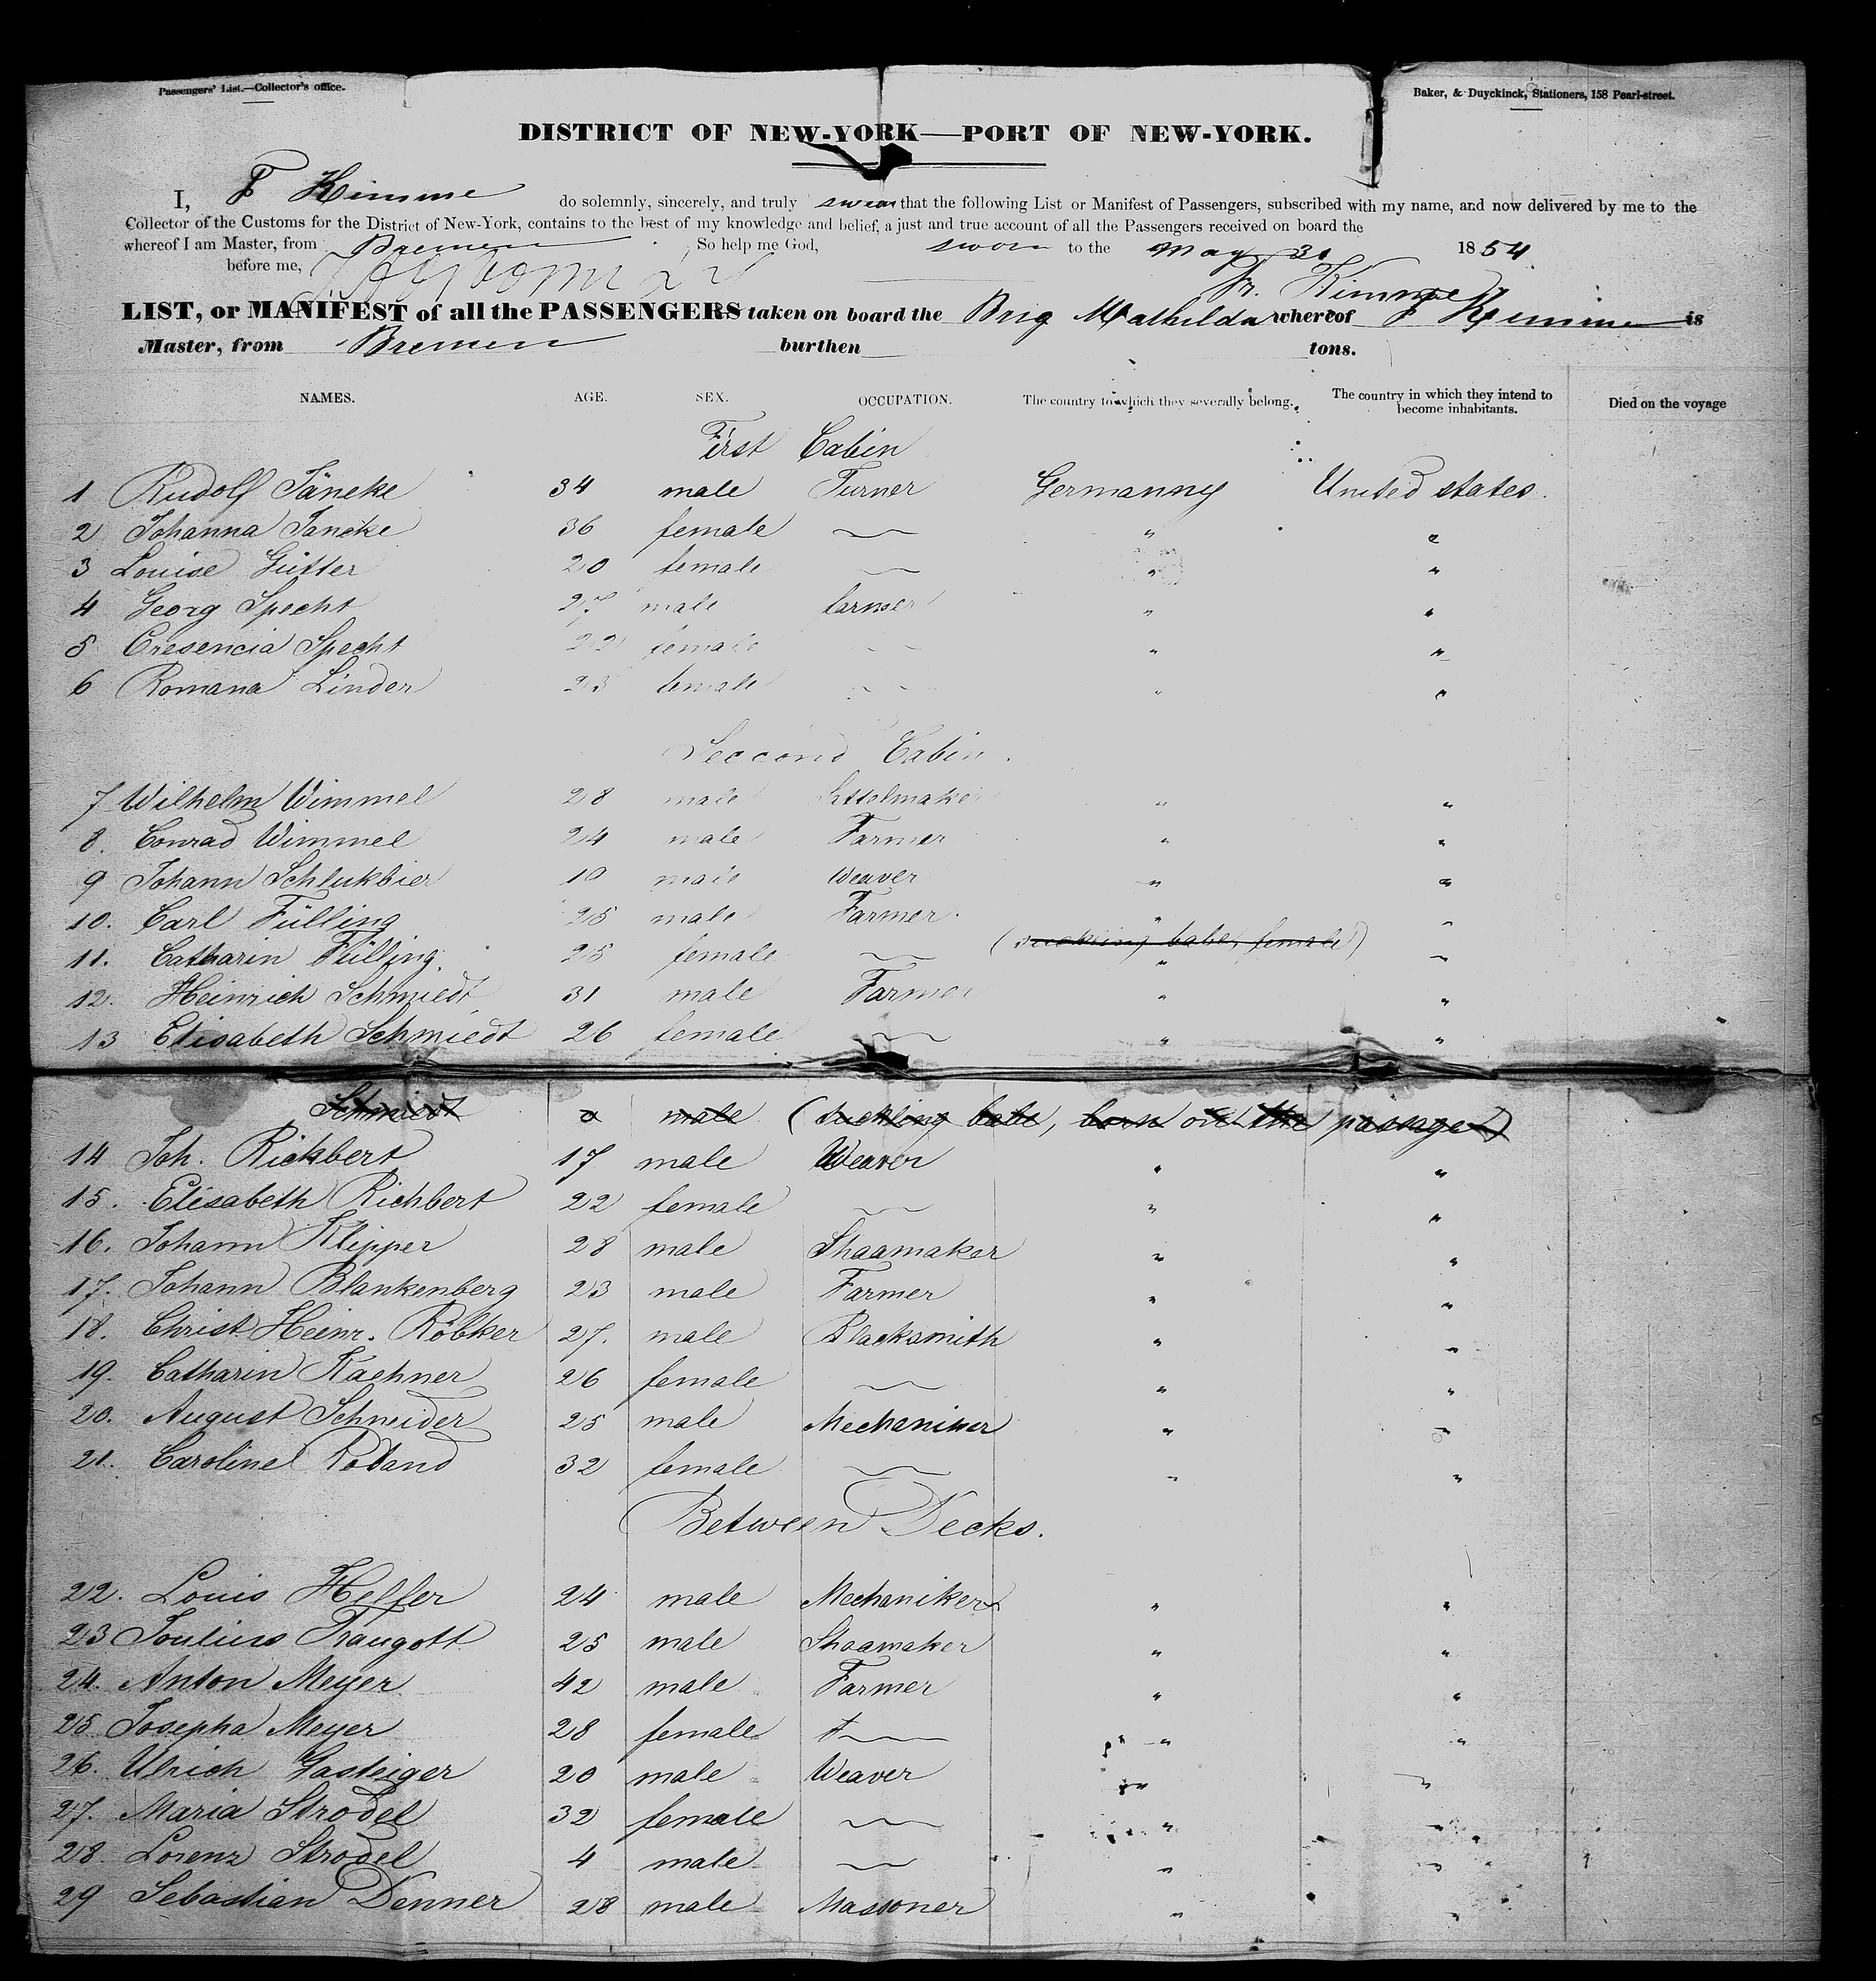 Passengers' List.—Collector's office.
Baker, & Duyckinck, Stationers, 158 Pearl-street.
DISTRICT OF NEW-YORK—PORT OF NEW-YORK.
I, F Kimme do solemnly, sincerely, and truly swear that the following List or Manifest of Passengers, subscribed with my name, and now delivered by me to the
Collector of the Customs for the District of New-York, contains to the best of my knowledge and belief, a just and true account of all the Passengers received on board the
whereof I am Master, from Bremen So help me God, sworn to the May 31 1854
before me, Fr. Kimme
LIST, or MANIFEST of all the PASSENGERS taken on board the Brig Mathilda whereof F Kimme is
Master, from Bremen burthen tons.
NAMES. AGE. SEX. OCCUPATION. The country to which they severally belong. The country in which they intend to become inhabitants. Died on the voyage
First Cabin
1 Rudolf Jäneke 34 male Turner Germanny United states.
2 Johanna Janeke 36 female — " "
3 Louise Gütter 20 female — " "
4 Georg Specht 27 male farmer " "
5 Cresencia Specht 22 female — " "
6 Romana Linder 23 female — " "
Seccond Cabin.
7 Wilhelm Wimmel 28 male Sattelmaker " "
8. Conrad Wimmel 24 male Farmer " "
9 Johann Schlukbier 19 male Weaver " "
10. Carl Fülling 25 male Farmer. " "
(suckling babe, female)
11. Catharin Fülling. 25 female — " "
12. Heinrich Schmiedt 31 male Farmer " "
13 Elisabeth Schmiedt 26 female — " "
Schmiedt a male (suckling babe, born on the passage)
14 Joh. Rickbert 17 male Weaver " "
15. Elisabeth Richbert 22 female — " "
16. Johann Klipper 28 male Shaamaker " "
17. Johann Blankenberg 23 male Farmer " "
18. Christ Heinr. Röbker 27. male Blacksmith " "
19. Catharin Kaehner 26 female — " "
20. August Schneider 25 male Mechaniker " "
21. Caroline Roland 32 female — " "
Between Decks.
22. Louis Helfer 24 male Mechaniker " "
23 Joulius Traugott 25 male Shaamaker " "
24. Anton Meyer 42 male Farmer " "
25 Josepha Meyer 28 female — " "
26. Ulrich Gasteiger 20 male Weaver " "
27. Maria Strodel 32 female — " "
28. Lorenz Strodel 4 male — " "
29 Sebastian Denner 28 male Massoner " "